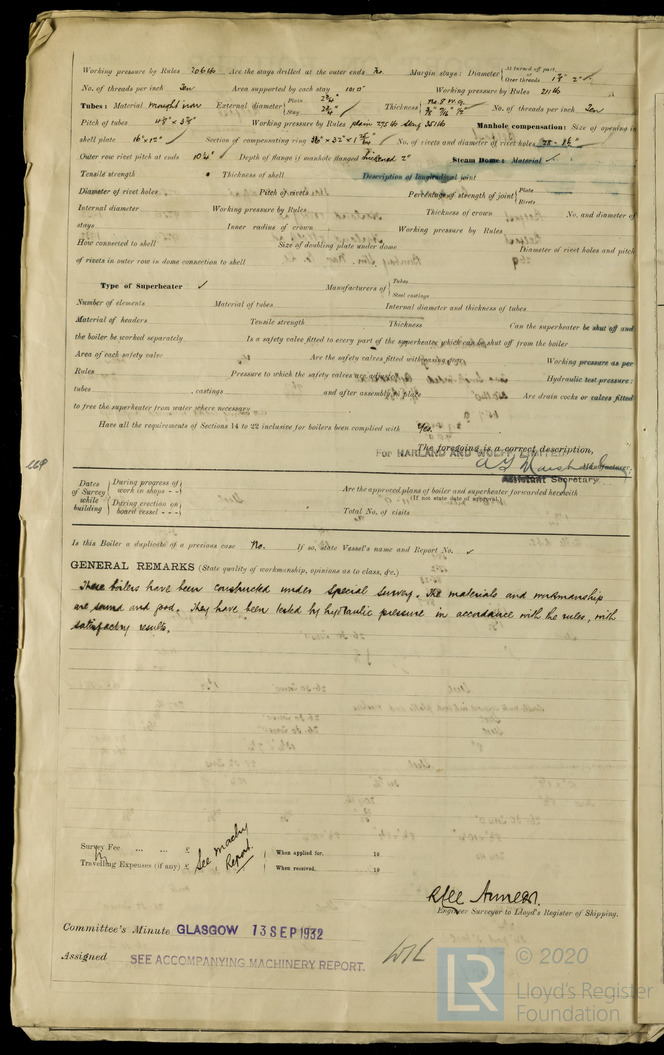 Working pressure by Rules 206 lb Are the stays drilled at the outer ends No Margin stays: Diameter { At turned off part, or Over threads 1 7/8" 2"
No. of threads per inch Ten Area supported by each stay Working pressure by Rules 211 lb
Tubes: Material Wrought iron External diameter { Plain 2 3/4" Stay 2 3/4" Thickness { No. 8 W.G. No. of threads per inch Ten
Pitch of tubes Working pressure by Rules plain 275 lb Manhole compensation: Size of opening in
shell plate 16" x 12" Section of compensating ring No. of rivets and diameter of rivet holes
Outer row rivet pitch at ends Depth of flange if manhole flanged 2" Steam Dome: Material ✓
Tensile strength Thickness of shell Description of longitudinal joint
Diameter of rivet holes Pitch of rivets Percentage of strength of joint { Plate Rivets
Internal diameter Working pressure by Rules Thickness of crown No. and diameter of
stays Inner radius of crown Working pressure by Rules
How connected to shell Size of doubling plate under dome Diameter of rivet holes and pitch
of rivets in outer row in dome connection to shell
Type of Superheater ✓ Manufacturers of { Tubes Steel castings
Number of elements Material of tubes Internal diameter and thickness of tubes
Material of headers Tensile strength Thickness Can the superheater be shut off and
the boiler be worked separately Is a safety valve fitted to every part of the superheater which can be shut off from the boiler
Area of each safety valve Are the safety valves fitted with easing gear Working pressure as per
Rules Pressure to which the safety valves are adjusted Hydraulic test pressure:
tubes , castings and after assembly in place Are drain cocks or valves fitted
to free the superheater from water where necessary
Have all the requirements of Sections 14 to 22 inclusive for boilers been complied with Yes.
The foregoing is a correct description,
FOR HARLAND AND WOLFF LIMITED
Manufacturer.
Assistant Secretary
Dates of Survey while building { During progress of work in shops - - } Are the approved plans of boiler and superheater forwarded herewith
(If not state date of approval.)
{ During erection on board vessel - - - } Total No. of visits
Is this Boiler a duplicate of a previous case No. If so, state Vessel's name and Report No. ✓
GENERAL REMARKS (State quality of workmanship, opinions as to class, &c.)
These boilers have been constructed under special survey. The materials and workmanship
are sound and good. They have been tested by hydraulic pressure in accordance with the rules, with
satisfactory results.
Survey Fee ... ... £ See Machy Report. { When applied for, 19
Travelling Expenses (if any) £ { When received, 19
Engineer Surveyor to Lloyd's Register of Shipping.
Committee's Minute GLASGOW 13 SEP 1932
Assigned SEE ACCOMPANYING MACHINERY REPORT.
LR © 2020
Lloyd's Register
Foundation